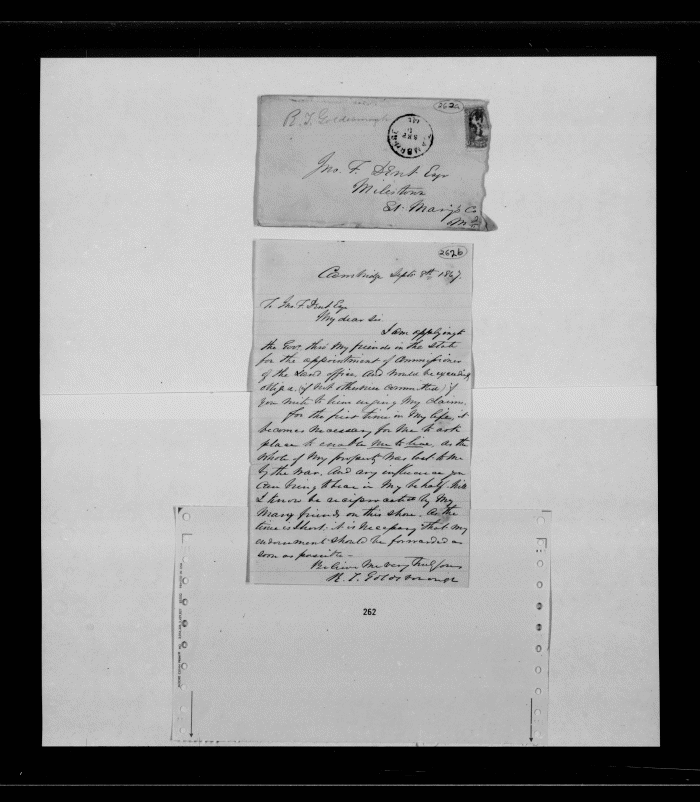 262a
R. T. Goldsborough
CAMBRIDGE
SEP
Jno. F. Dent Esqr
Milestown
St. Mary's Co
Md
262b
Cambridge Septr 8th, 1867.
To Jno F Dent Esqr
My dear Sir.
I am applying to
the Gov. thro My friends in the State
for the appointment of Commissioner
of the Land office. And would be exceedingly
oblige. (if not otherwise committed) if
you write to him urging My claims.
for the first time in My life, it
becomes necessary for me to ask
place to enable me to live. As the
whole of My property was lost to me
by the war. And any influence you
can bring to bear in My behalf will
I know be reciprocated by My
Many friends on this shore. As the
time is short. it is necessary that my
endorsement should be forwarded as
soon as possible -
Believe me very truly yours
R. T. Goldsborough
262